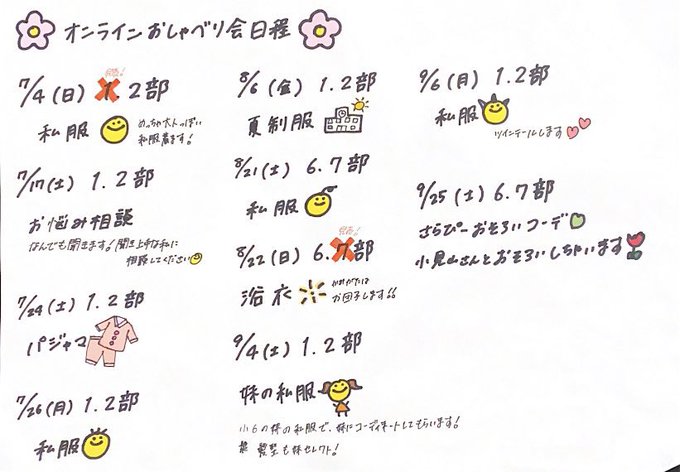 オンラインおしゃべり会日程
7/4(日) 1.2部
私服
めっちゃ大人っぽい
私服着ます!
7/17(土) 1.2部
お悩み相談
なんでも聞きます!聞き上手な私に
相談してください
7/24(土) 1.2部
パジャマ
7/26(月) 1.2部
私服
8/6(金) 1.2部
夏制服
8/21(土) 6.7部
私服
8/22(日) 6.7部
浴衣
お団子します!!
9/4(土) 1.2部
妹の私服
小6の妹の私服で、妹にコーディネートしてもらいます!
髪型も妹セレクト!
9/6(月) 1.2部
私服
ツインテールします
9/25(土) 6.7部
さらぴーおそろいコーデ
小見山さんとおそろいしちゃいます